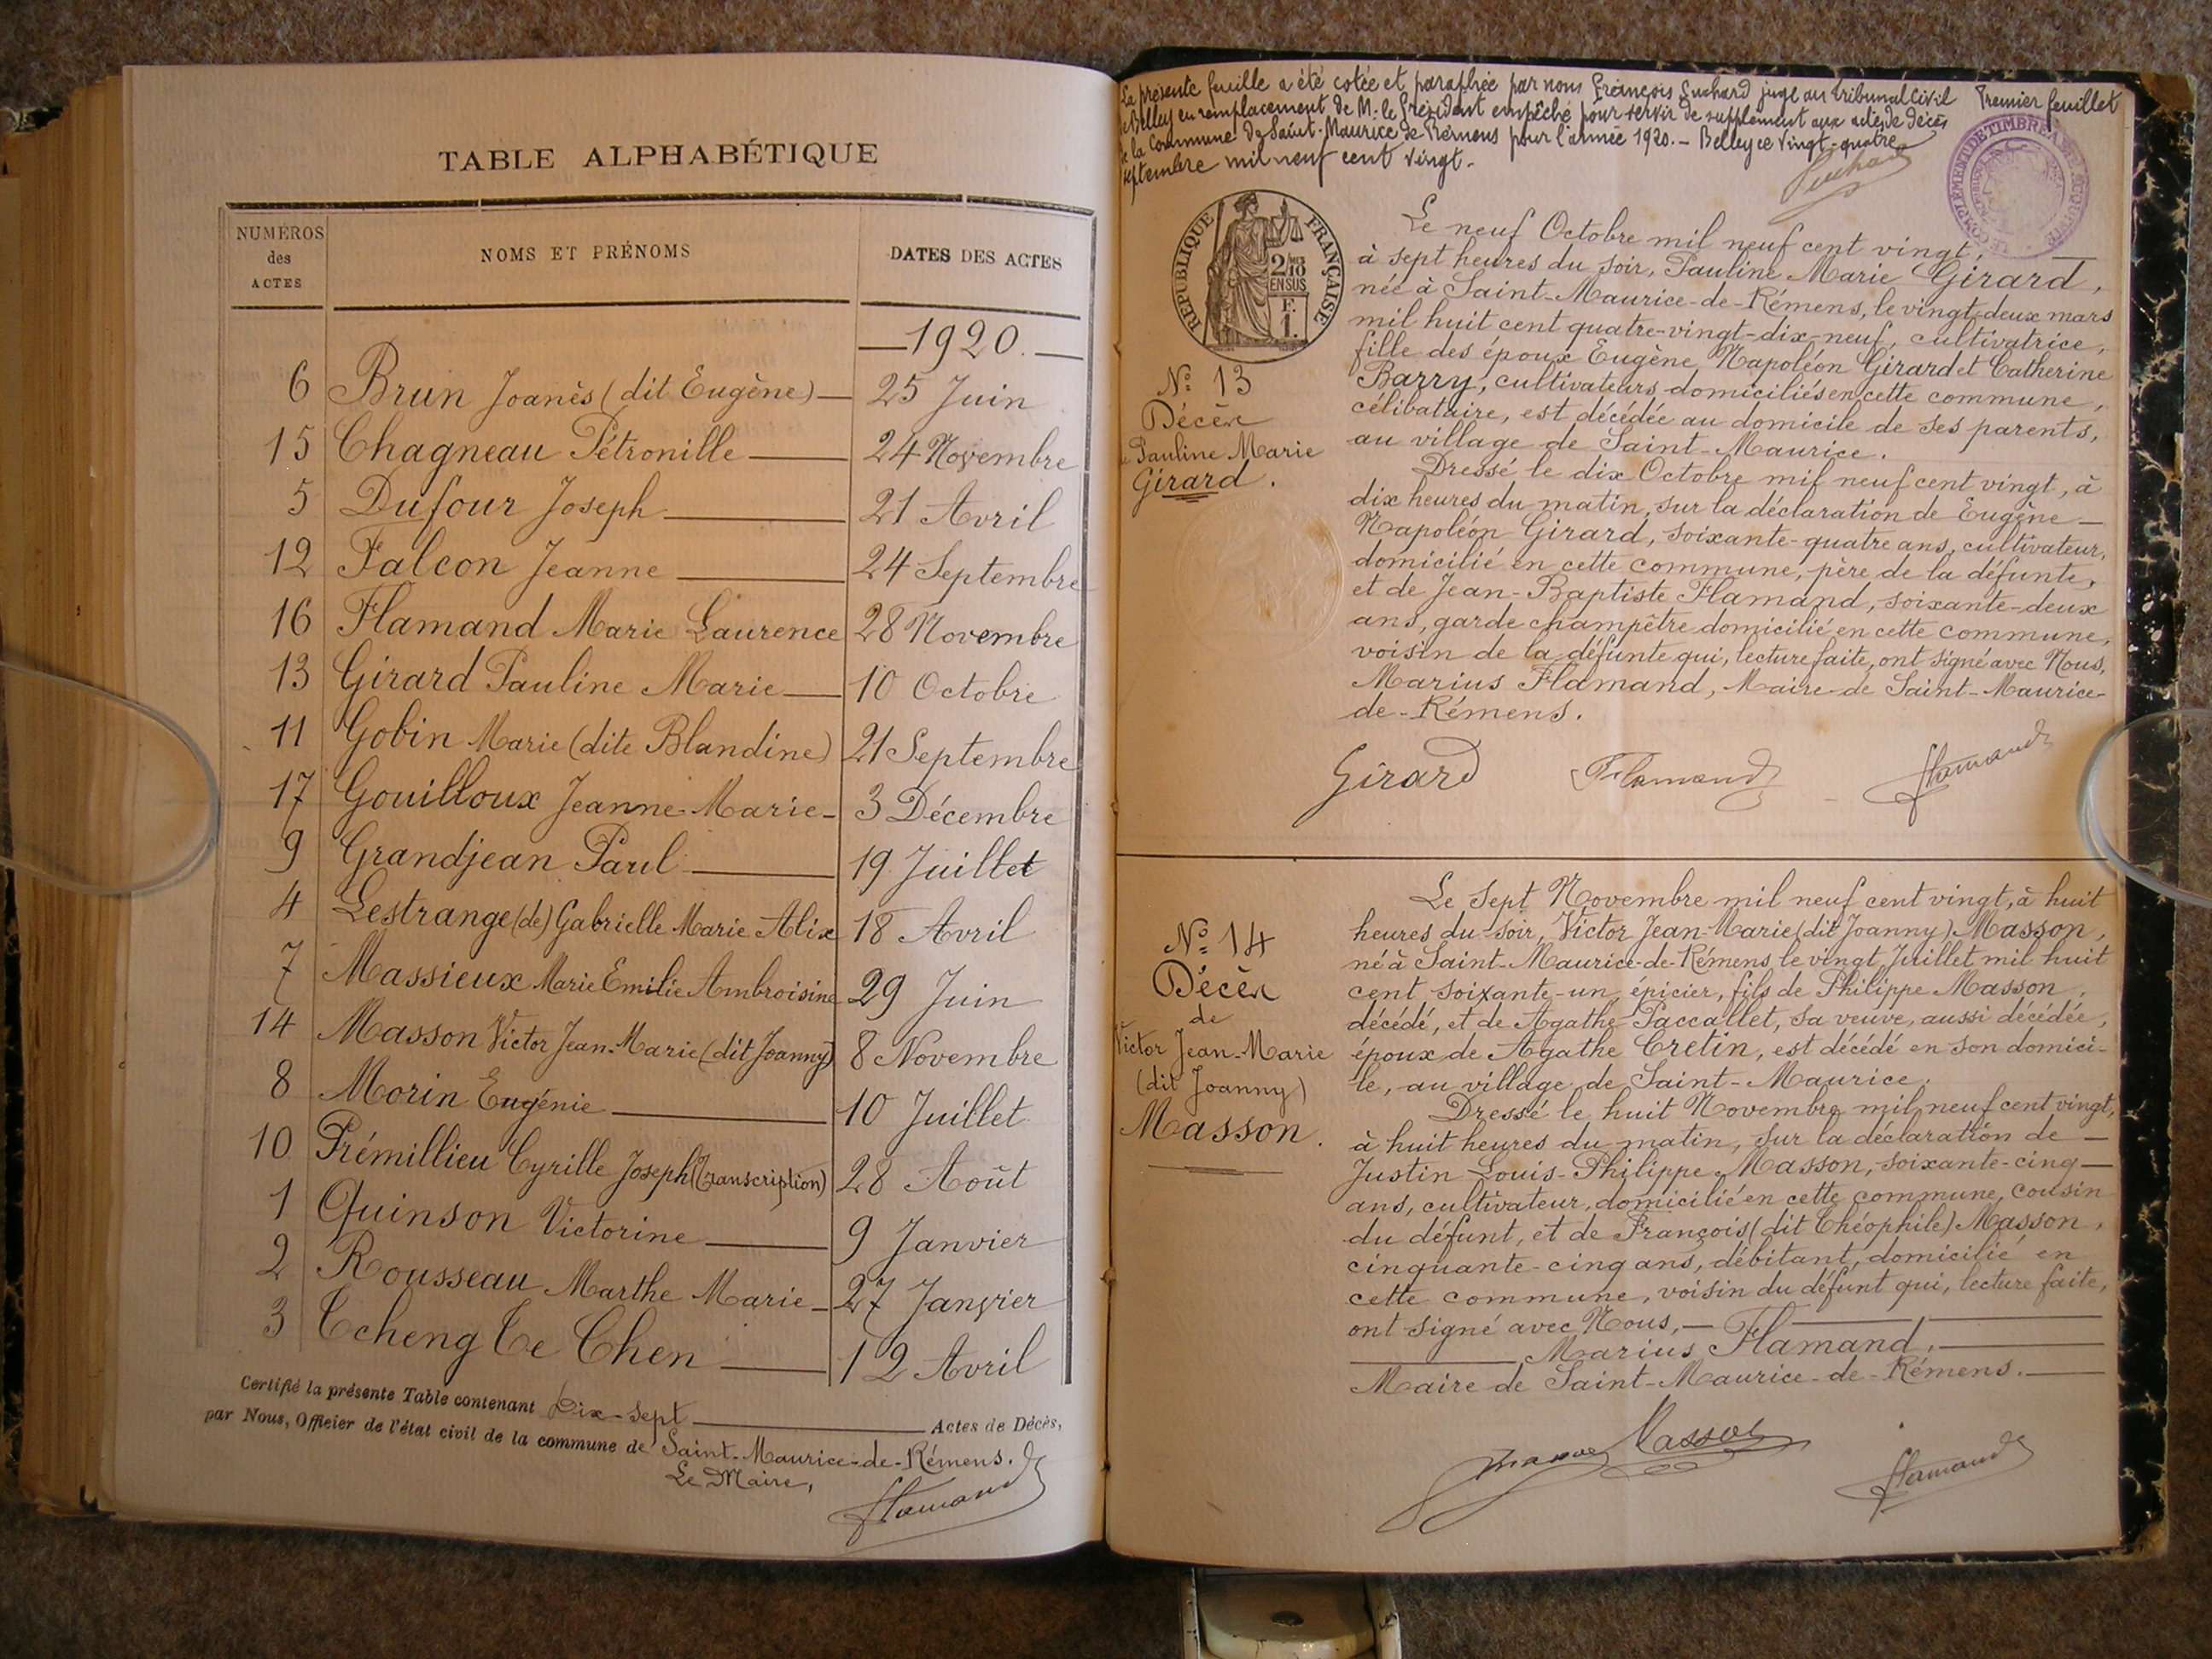 TABLE ALPHABÉTIQUE
NUMÉROS des ACTES
NOMS ET PRÉNOMS
DATES DES ACTES
1920.
6 Brun Joanès (dit Eugène) 25 Juin
15 Chagneau Pétronille 24 Novembre
5 Dufour Joseph 21 Avril
12 Falcon Jeanne 24 Septembre
16 Flamand Marie Laurence 28 Novembre
13 Girard Pauline Marie 10 Octobre
11 Gobin Marie (dite Blandine) 21 Septembre
17 Gouilloux Jeanne-Marie 3 Décembre
9 Grandjean Paul 19 Juillet
4 Lestrange (de) Gabrielle Marie Alix 18 Avril
7 Massieux Marie Emilie Ambroisine 29 Juin
14 Masson Victor Jean-Marie (dit Joanny) 8 Novembre
8 Morin Eugénie 10 Juillet
10 Prémillieu Cyrille Joseph (Transcription) 28 Août
1 Quinson Victorine 9 Janvier
2 Rousseau Marthe Marie 27 Janvier
3 Tcheng Te Chen 12 Avril
Certifié la présente Table contenant Dix-sept Actes de Décès,
par Nous, Officier de l'état civil de la commune de Saint-Maurice-de-Rémens.
Le Maire,
Flamand
La présente feuille a été cotée et paraphée par nous François Suchard juge au tribunal civil
de Belley en remplacement de M. le Président empêché pour servir de supplément aux actes de décès
de la Commune de Saint-Maurice de Rémens pour l'année 1920. - Belley ce vingt-quatre
septembre mil neuf cent vingt.
Suchard
Premier feuillet
RÉPUBLIQUE FRANÇAISE
2/10
EN SUS
F.
1.
N° 13
Décès
de Pauline Marie
Girard.
Le neuf Octobre mil neuf cent vingt,
à sept heures du soir, Pauline Marie Girard,
née à Saint-Maurice-de-Rémens, le vingt-deux mars
mil huit cent quatre-vingt-dix-neuf, cultivatrice,
fille des époux Eugène Napoléon Girard et Catherine
Barry, cultivateurs domiciliés en cette commune,
célibataire, est décédée au domicile de ses parents,
au village de Saint-Maurice.
Dressé le dix Octobre mil neuf cent vingt, à
dix heures du matin, sur la déclaration de Eugène
Napoléon Girard, soixante-quatre ans, cultivateur,
domicilié en cette commune, père de la défunte,
et de Jean-Baptiste Flamand, soixante-deux
ans, garde champêtre domicilié en cette commune,
voisin de la défunte qui, lecture faite, ont signé avec Nous,
Marius Flamand, Maire de Saint-Maurice-
de-Rémens.
Girard Flamand Flamand
N° 14
Décès
de
Victor Jean-Marie
(dit Joanny)
Masson.
Le sept Novembre mil neuf cent vingt, à huit
heures du soir, Victor Jean-Marie (dit Joanny) Masson,
né à Saint-Maurice-de-Rémens le vingt Juillet mil huit
cent soixante-un, épicier, fils de Philippe Masson,
décédé, et de Agathe Paccallet, sa veuve, aussi décédée,
époux de Agathe Cretin, est décédé en son domici-
le, au village de Saint-Maurice.
Dressé le huit Novembre mil neuf cent vingt,
à huit heures du matin, sur la déclaration de
Justin Louis-Philippe Masson, soixante-cinq
ans, cultivateur, domicilié en cette commune, cousin
du défunt, et de François (dit Théophile) Masson,
cinquante-cinq ans, débitant, domicilié en
cette commune, voisin du défunt qui, lecture faite,
ont signé avec Nous,
Marius Flamand,
Maire de Saint-Maurice-de-Rémens.
Masson Masson Flamand